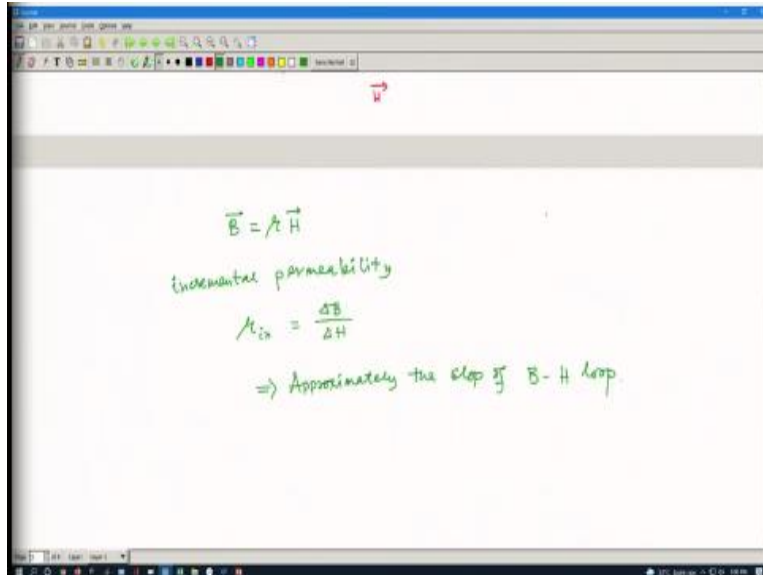 H
B = μ H
incremental permeability
μin = ΔB / ΔH
=> Approximately the slop of B-H loop.